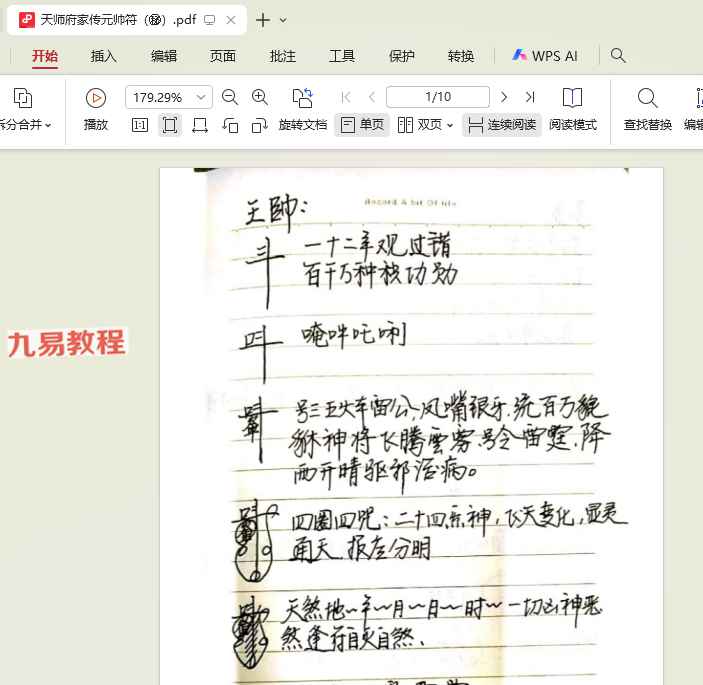 天师府家传元帅符（秘）.pdf
开始 插入 编辑 页面 批注 工具 保护 转换 WPS AI
拆分合并 播放 179.29% 旋转文档 1/10 单页 双页 连续阅读 阅读模式 查找替换 编辑
Record A bit Of life
王帥：
一十二年观过错
百千万种积功勋
唵吽吒唎
九易教程
号三五火车雷公，凤嘴银牙，统百万貔
貅神将飞腾雲雾，号令雷霆，降
雨开晴驱邪治病。
四圈四咒：二十四炁神，飞天变化，显灵
通天 报应分明
天煞地~年~月~日~时~一切凶神恶
煞逢符自灭自煞、